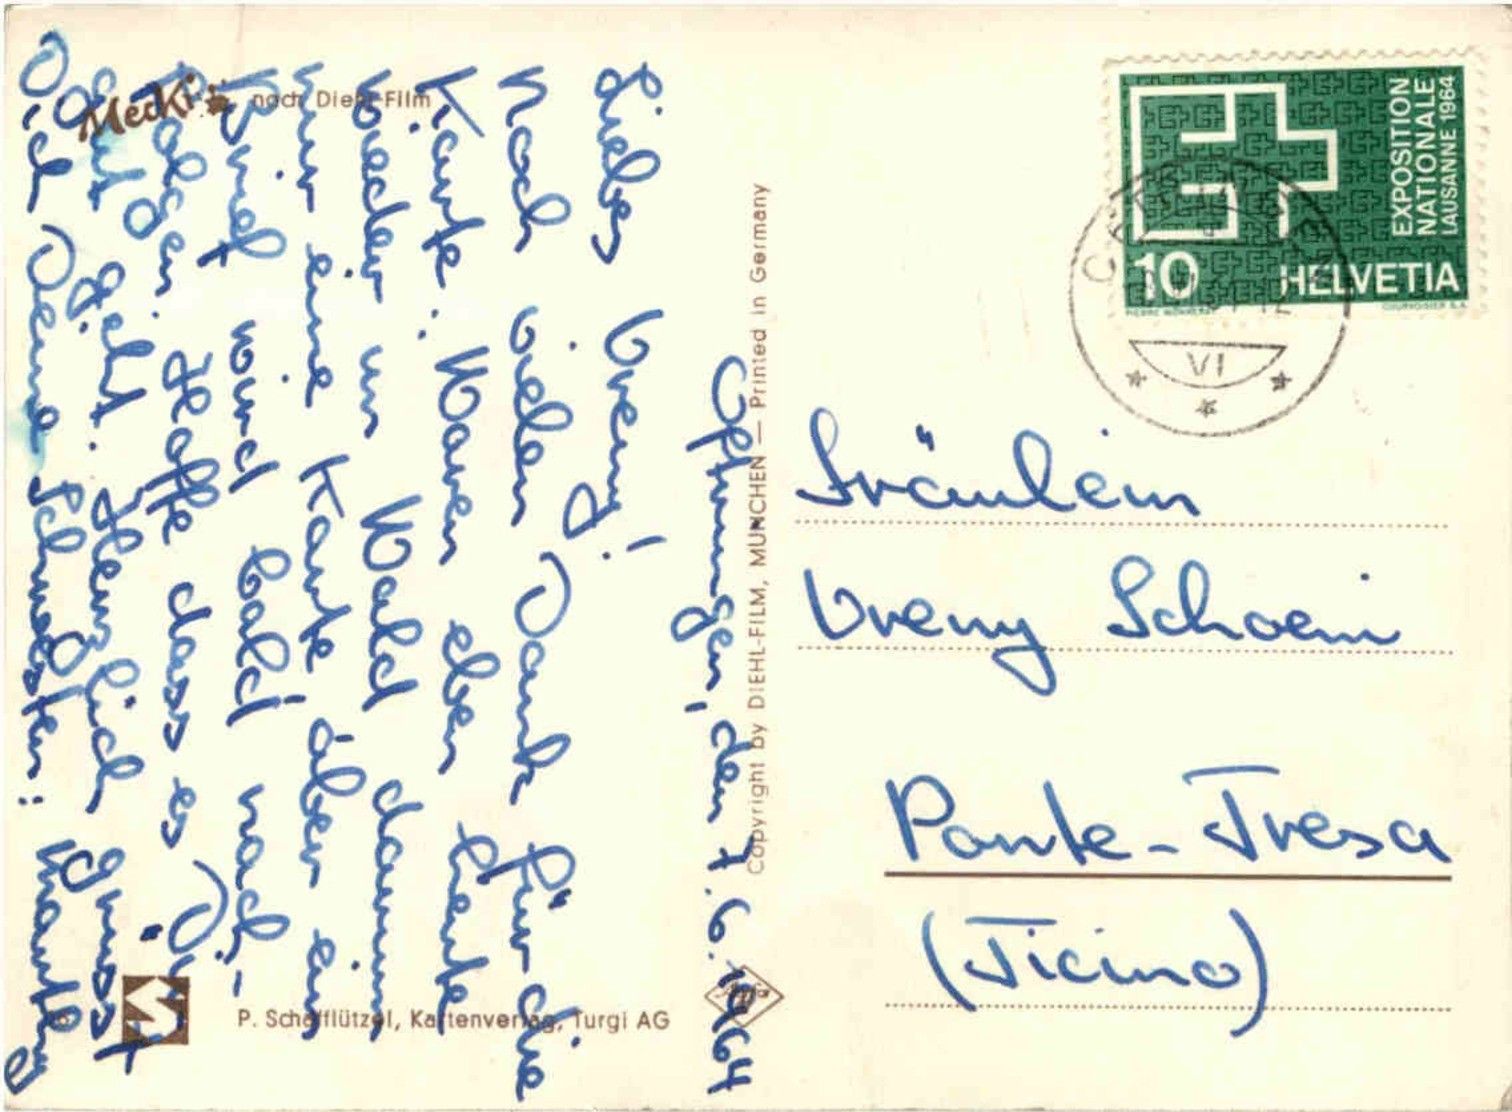 Mecki
nach Diehl-Film
EXPOSITION
NATIONALE
LAUSANNE 1964
10 HELVETIA
VI
Copyright by DIEHL-FILM, MÜNCHEN — Printed in Germany
P. Schafflützel, Kartenverlag, Turgi AG
den 7. 6. 1964
Liebes Vreny!
Noch vielen Dank für die
Karte. Waren eben heute
wieder im Wald darum
nur eine Karte, aber ein
Brief wird bald nach-
folgen. Hoffe dass es Dir
gut geht. Herzlich grüsst
Dich Deine Schwester:
Fräulein
Vreny Schoeni
Ponte-Tresa
(Ticino)